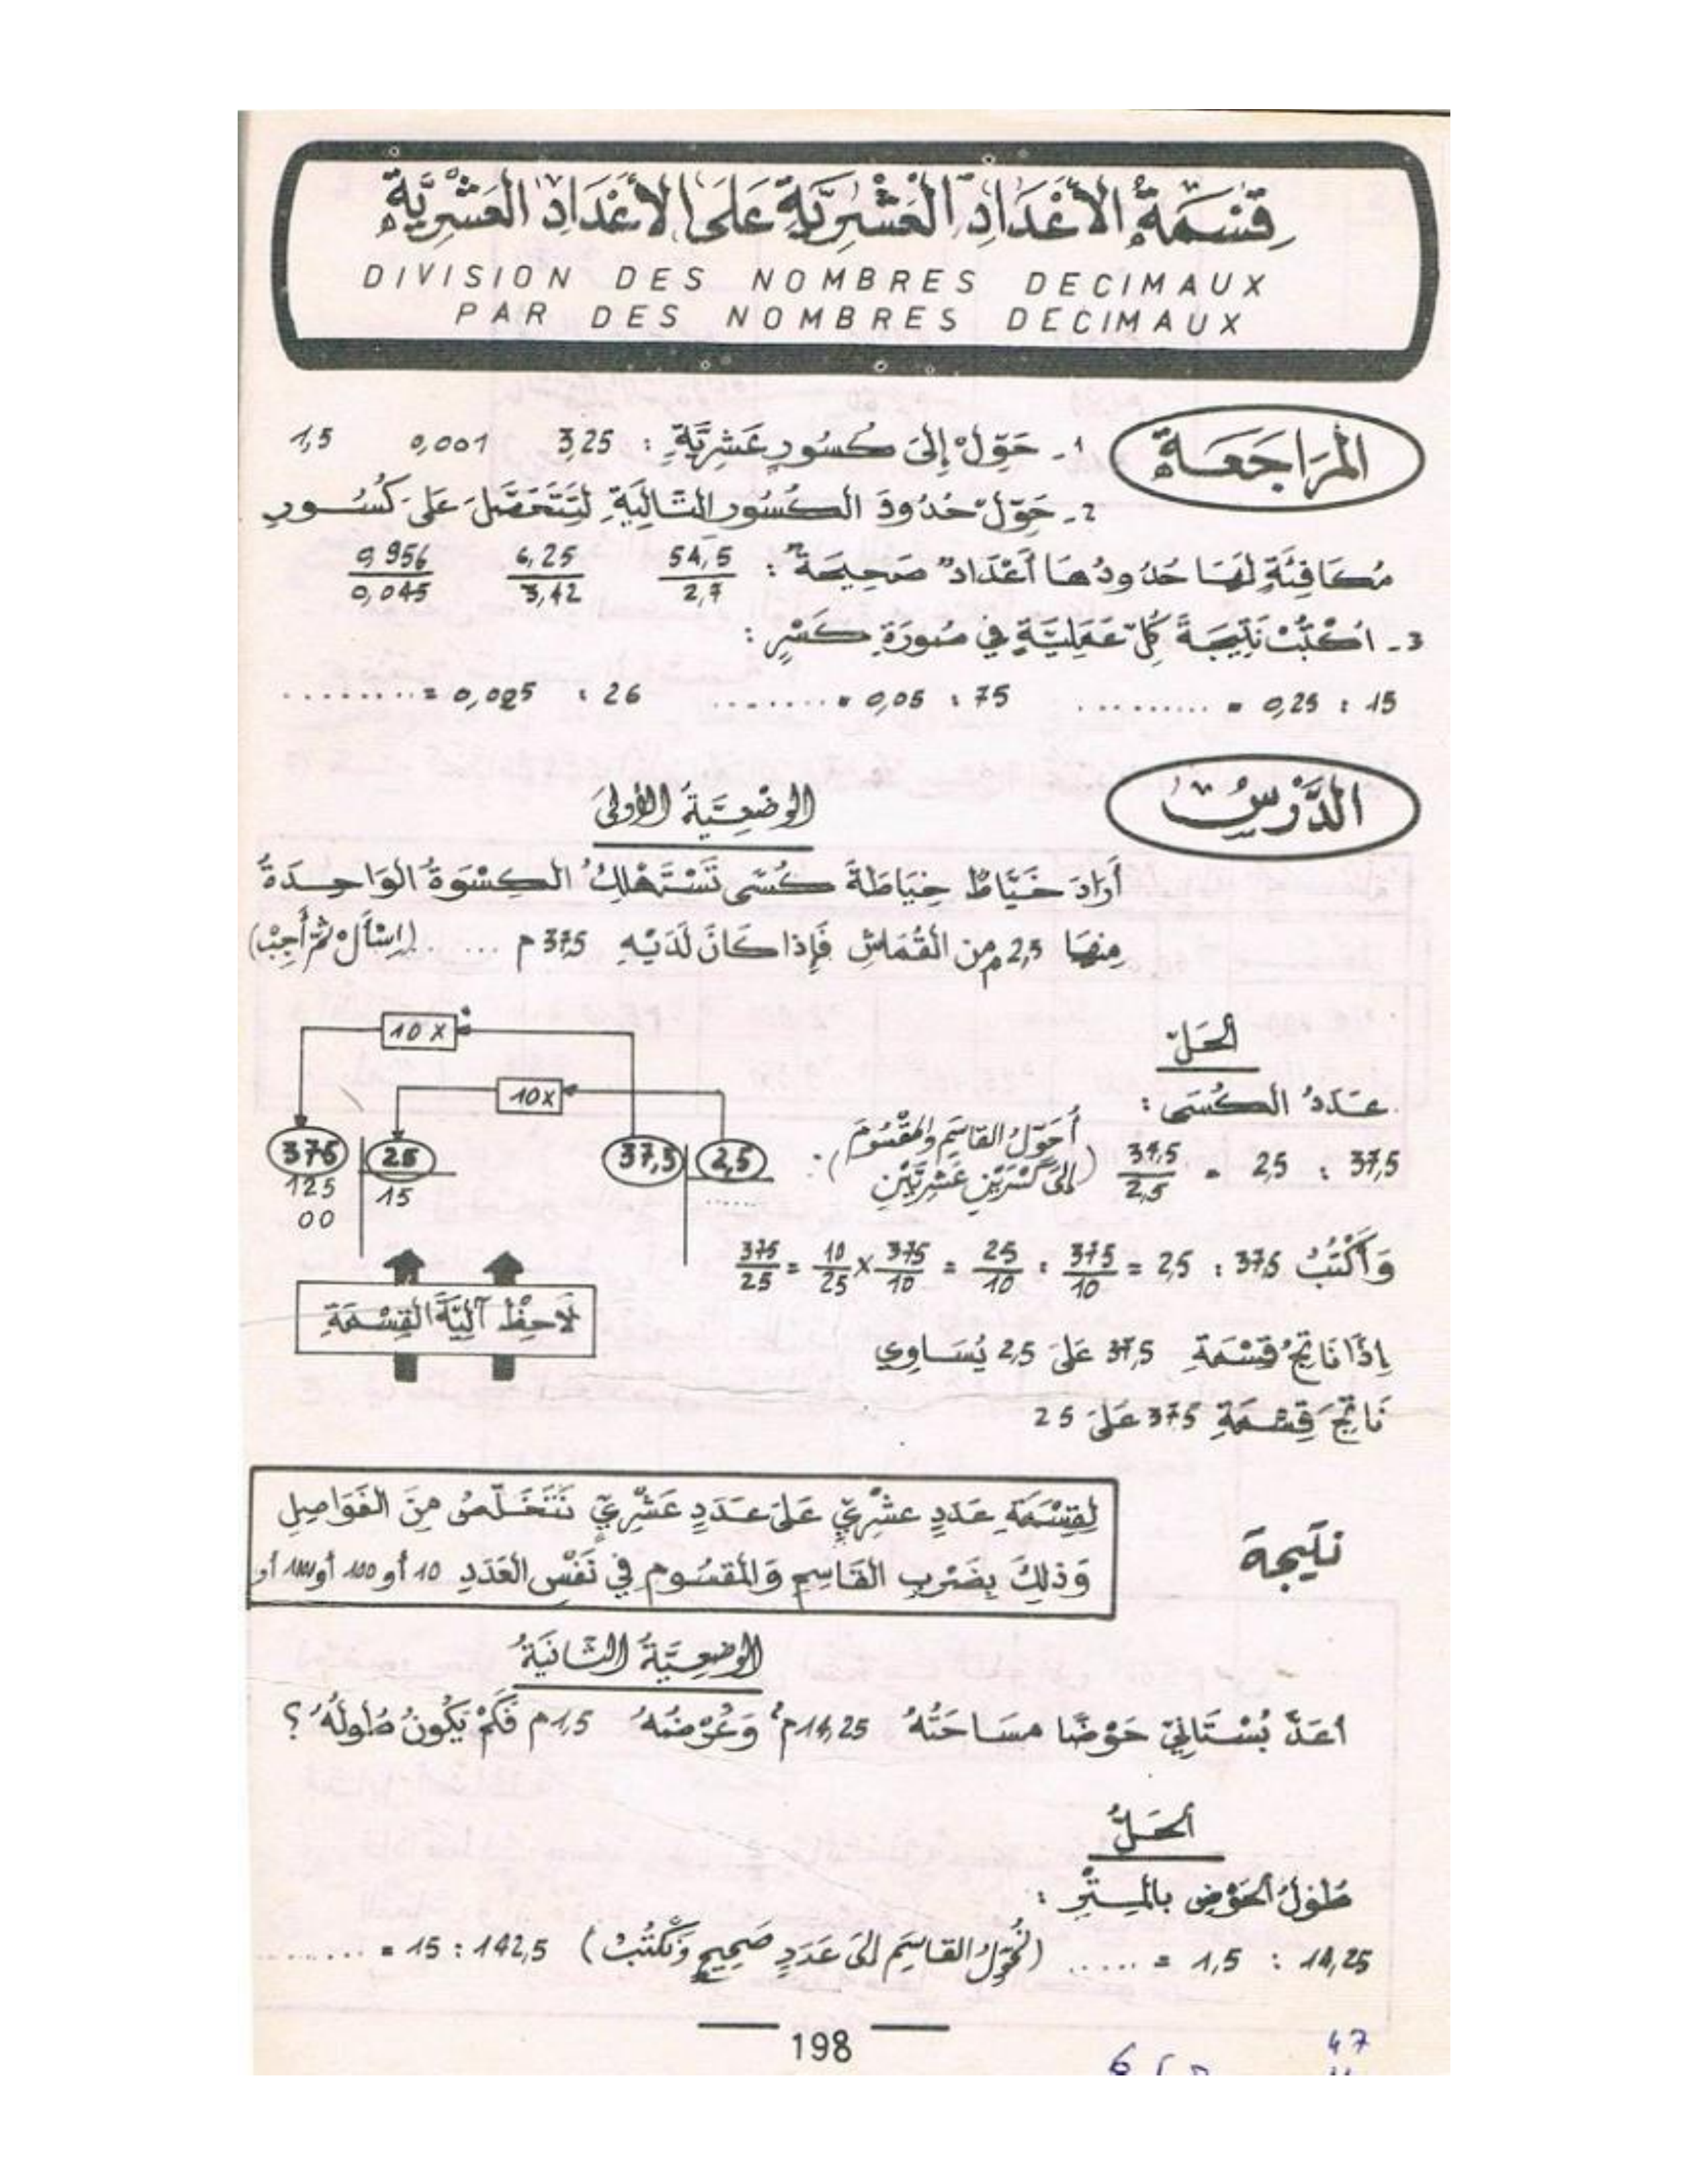 قِسْمَةُ الأَعْدَادِ العَشْرِيَّةِ عَلَى الأَعْدَادِ العَشْرِيَّةِ
DIVISION DES NOMBRES DECIMAUX
PAR DES NOMBRES DECIMAUX
المُرَاجَعَة
1- حَوِّلْ إِلَى كُسُورٍ عَشْرِيَّةٍ : 3,25 0,001 1,5
2- حَوِّلْ حُدُودَ الكُسُورِ التَّالِيَةِ لِتَتَحَصَّلَ عَلَى كُسُورٍ
مُكَافِئَةٍ لَهَا حُدُودُهَا أَعْدَادٌ صَحِيحَةٌ : 54,5/2,7 6,25/3,42 0,956/0,045
3- اُكْتُبْ نَتِيجَةَ كُلِّ عَمَلِيَّةٍ فِي صُورَةِ كَسْرٍ :
15 : 0,25 = ......... 75 : 0,05 = ........ 26 : 0,025 = .........
الدَّرْسُ
الوَضْعِيَّةُ الأُولَى
أَرَادَ خَيَّاطٌ خِيَاطَةَ كُسًى تَسْتَهْلِكُ الكِسْوَةُ الوَاحِدَةُ
مِنْهَا 2,5 م مِن القُمَاشِ فَإِذَا كَانَ لَدَيْهِ 37,5 م ..... (اِسْأَلْ ثُمَّ أَجِبْ)
الحَلّ
عَدَدُ الكُسَى :
37,5 : 2,5 = 37,5/2,5 (أُحَوِّلُ القَاسِمَ وَالمَقْسُومَ
إِلَى كَسْرَيْنِ عَشْرِيَّيْنِ) :
10 x
10 x
375 25 37,5 2,5
125 15 ......
00
وَأَكْتُبُ 37,5 : 2,5 = 375/10 : 25/10 = 375/10 x 10/25 = 375/25
لَاحِظْ آلِيَّةَ القِسْمَةِ
إِذًا نَاتِجُ قِسْمَةِ 37,5 عَلَى 2,5 يُسَاوِي
نَاتِجَ قِسْمَةِ 375 عَلَى 25
نتيجة
لِقِسْمَةِ عَدَدٍ عَشْرِيٍّ عَلَى عَدَدٍ عَشْرِيٍّ نَتَخَلَّصُ مِنَ الفَوَاصِلِ
وَذَلِكَ بِضَرْبِ القَاسِمِ وَالمَقْسُومِ فِي نَفْسِ العَدَدِ 10 أو 100 أو 1000 أو
الوَضْعِيَّةُ الثَّانِيَةُ
أعَدَّ بُسْتَانِيٌّ حَوْضًا مسَاحَتُهُ 14,25 م² وَعَرْضُهُ 1,5 م فَكَمْ يَكُونُ طُولُهُ ؟
الحَلُّ
طُولُ الحَوْضِ بِالمِتْرِ :
14,25 : 1,5 = ..... (نُحَوِّلُ القَاسِمَ إلَى عَدَدٍ صَحِيحٍ وَنَكْتُبُ) 142,5 : 15 = ........
198
47